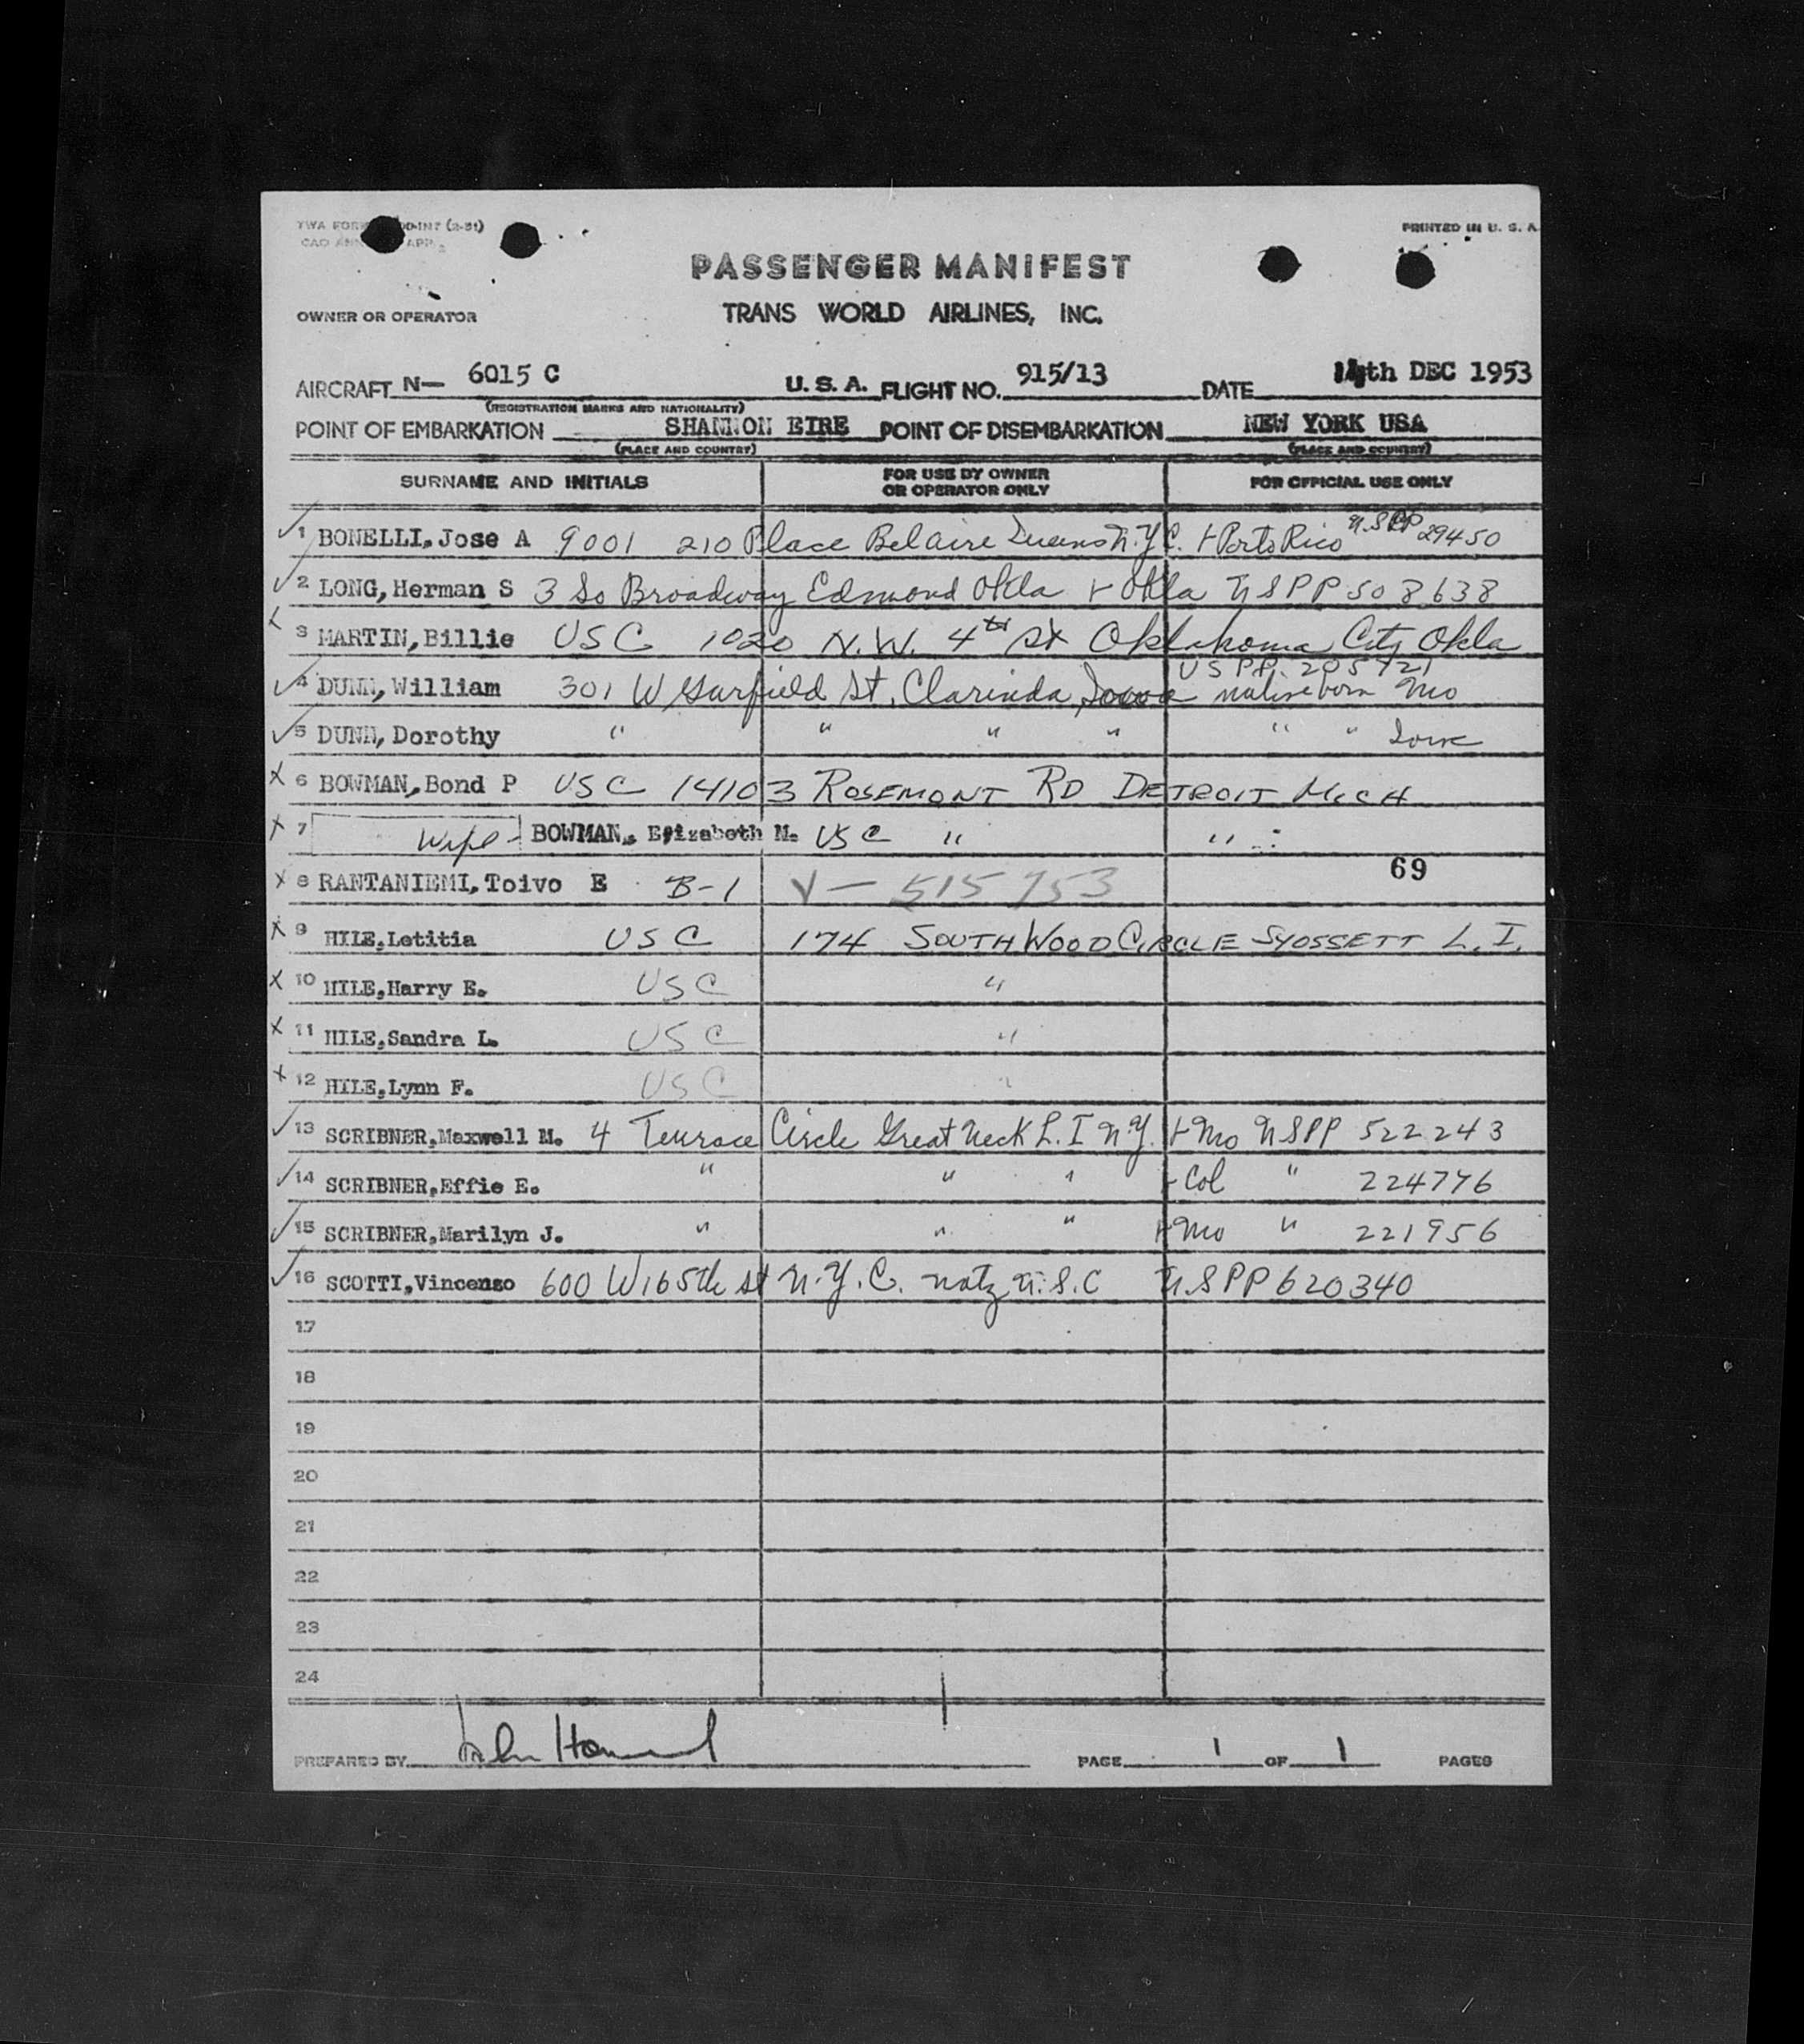 PRINTED IN U. S. A.
PASSENGER MANIFEST
TRANS WORLD AIRLINES, INC.
OWNER OR OPERATOR
AIRCRAFT N— 6015 C U. S. A. FLIGHT NO. 915/13 DATE 14th DEC 1953
(REGISTRATION MARKS AND NATIONALITY)
POINT OF EMBARKATION SHANNON EIRE POINT OF DISEMBARKATION NEW YORK USA
(PLACE AND COUNTRY) (PLACE AND COUNTRY)
SURNAME AND INITIALS FOR USE BY OWNER OR OPERATOR ONLY FOR OFFICIAL USE ONLY
1 BONELLI, Jose A 9001 210 Place Belaire Queens N.Y.C. + Porto Rico U.S PP 29450
2 LONG, Herman S 3 So Broadway Edmond Okla + Okla U S P P 508638
3 MARTIN, Billie USC 1020 N.W. 4th St Oklahoma City Okla
US PP.
4 DUNN, William 301 W Garfield St, Clarinda, Iowa native born Mo
5 DUNN, Dorothy " " " " " " Iowa
6 BOWMAN, Bond P USC 14103 ROSEMONT RD DETROIT MICH
7 Wife - BOWMAN, Elizabeth M. USC " "
69
8 RANTANIEMI, Toivo E B-1 V- 515753
9 HILE, Letitia USC 174 SOUTHWOOD CIRCLE SYOSSETT L. I.
10 HILE, Harry E. USC "
11 HILE, Sandra L. USC "
12 HILE, Lynn F. USC "
13 SCRIBNER, Maxwell M. 4 Terrace Circle Great Neck L. I N.Y. + Mo U S PP 522243
14 SCRIBNER, Effie E. " " " + Col " 224776
15 SCRIBNER, Marilyn J. " " " + Mo " 221956
16 SCOTTI, Vincenso 600 W 165th St N.Y.C. natz U.S.C U.S PP 620340
17
18
19
20
21
22
23
24
PREPARED BY John PAGE 1 OF 1 PAGES